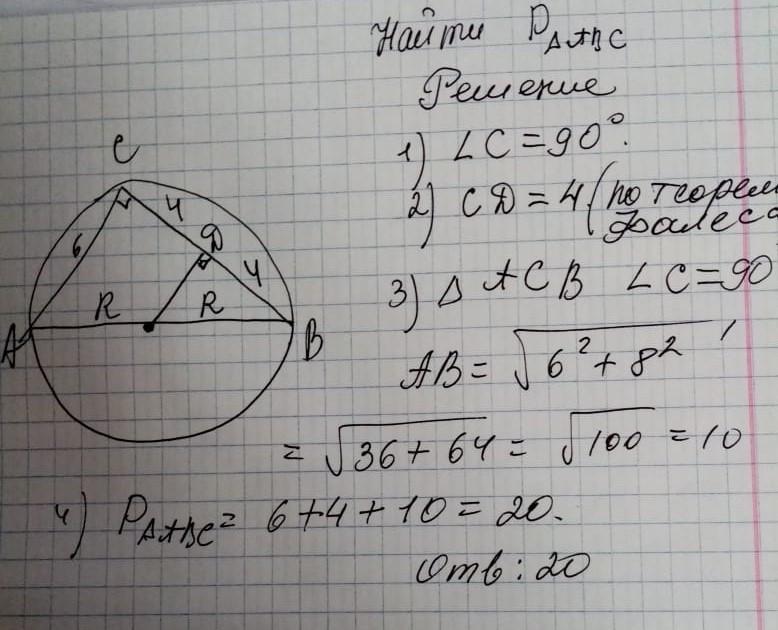 Найти P△ABC
Решение
1) ∠C = 90°.
2) CD = 4 (по теорем
Фалеса
3) △ ACB ∠C = 90
AB = √6² + 8²
= √36 + 64 = √100 = 10
4) P△ABC = 6 + 4 + 10 = 20.
Отв : 20
C
4
6
D
4
R
R
A
B